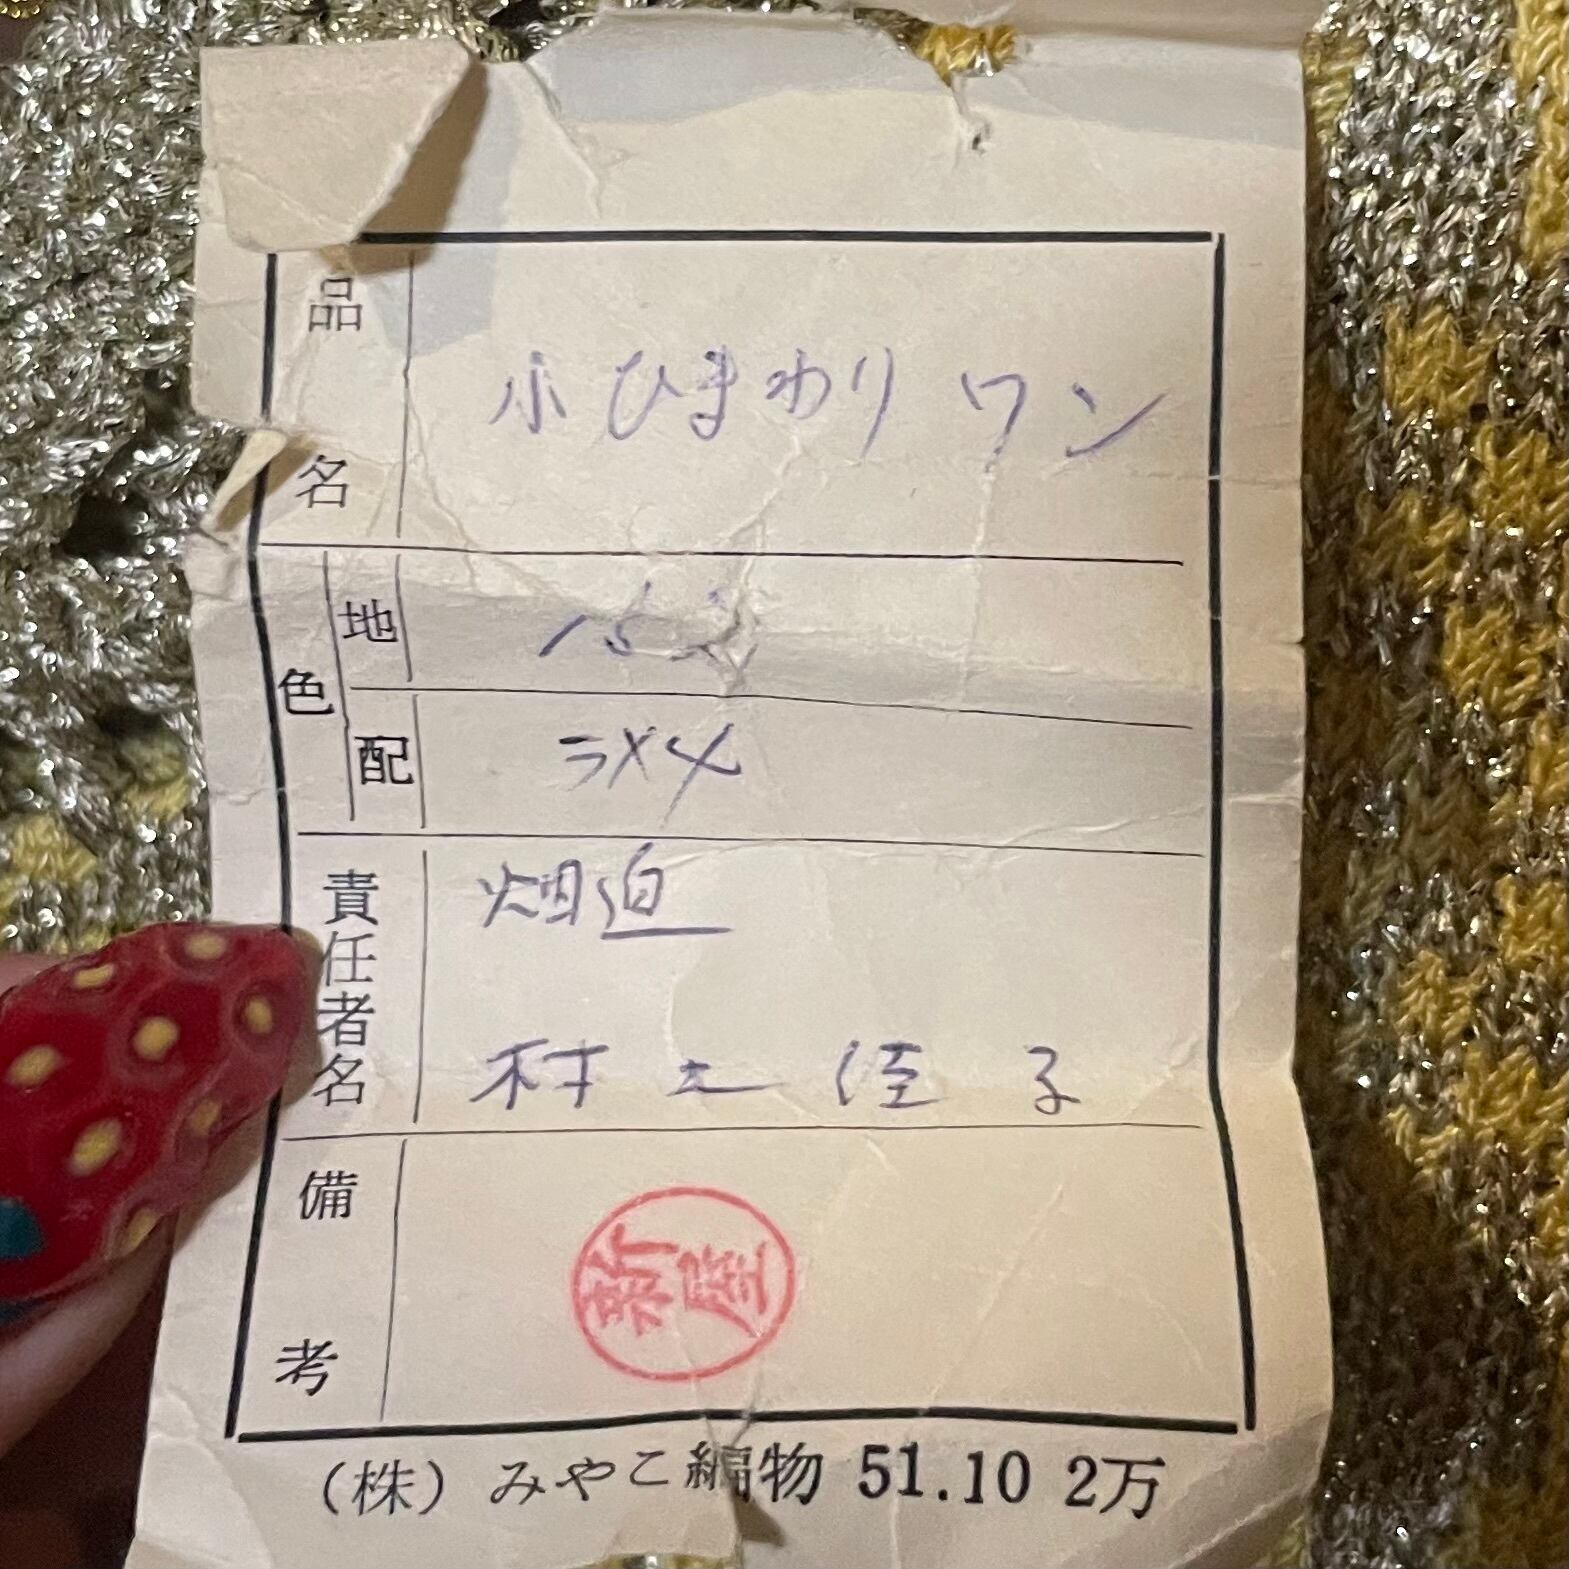 品名 小ひまわり ワン
色
地
配 ラメ
責任者名 畑迫
村上 佳子
備考 新屋
(株) みやこ編物 51.10 2万